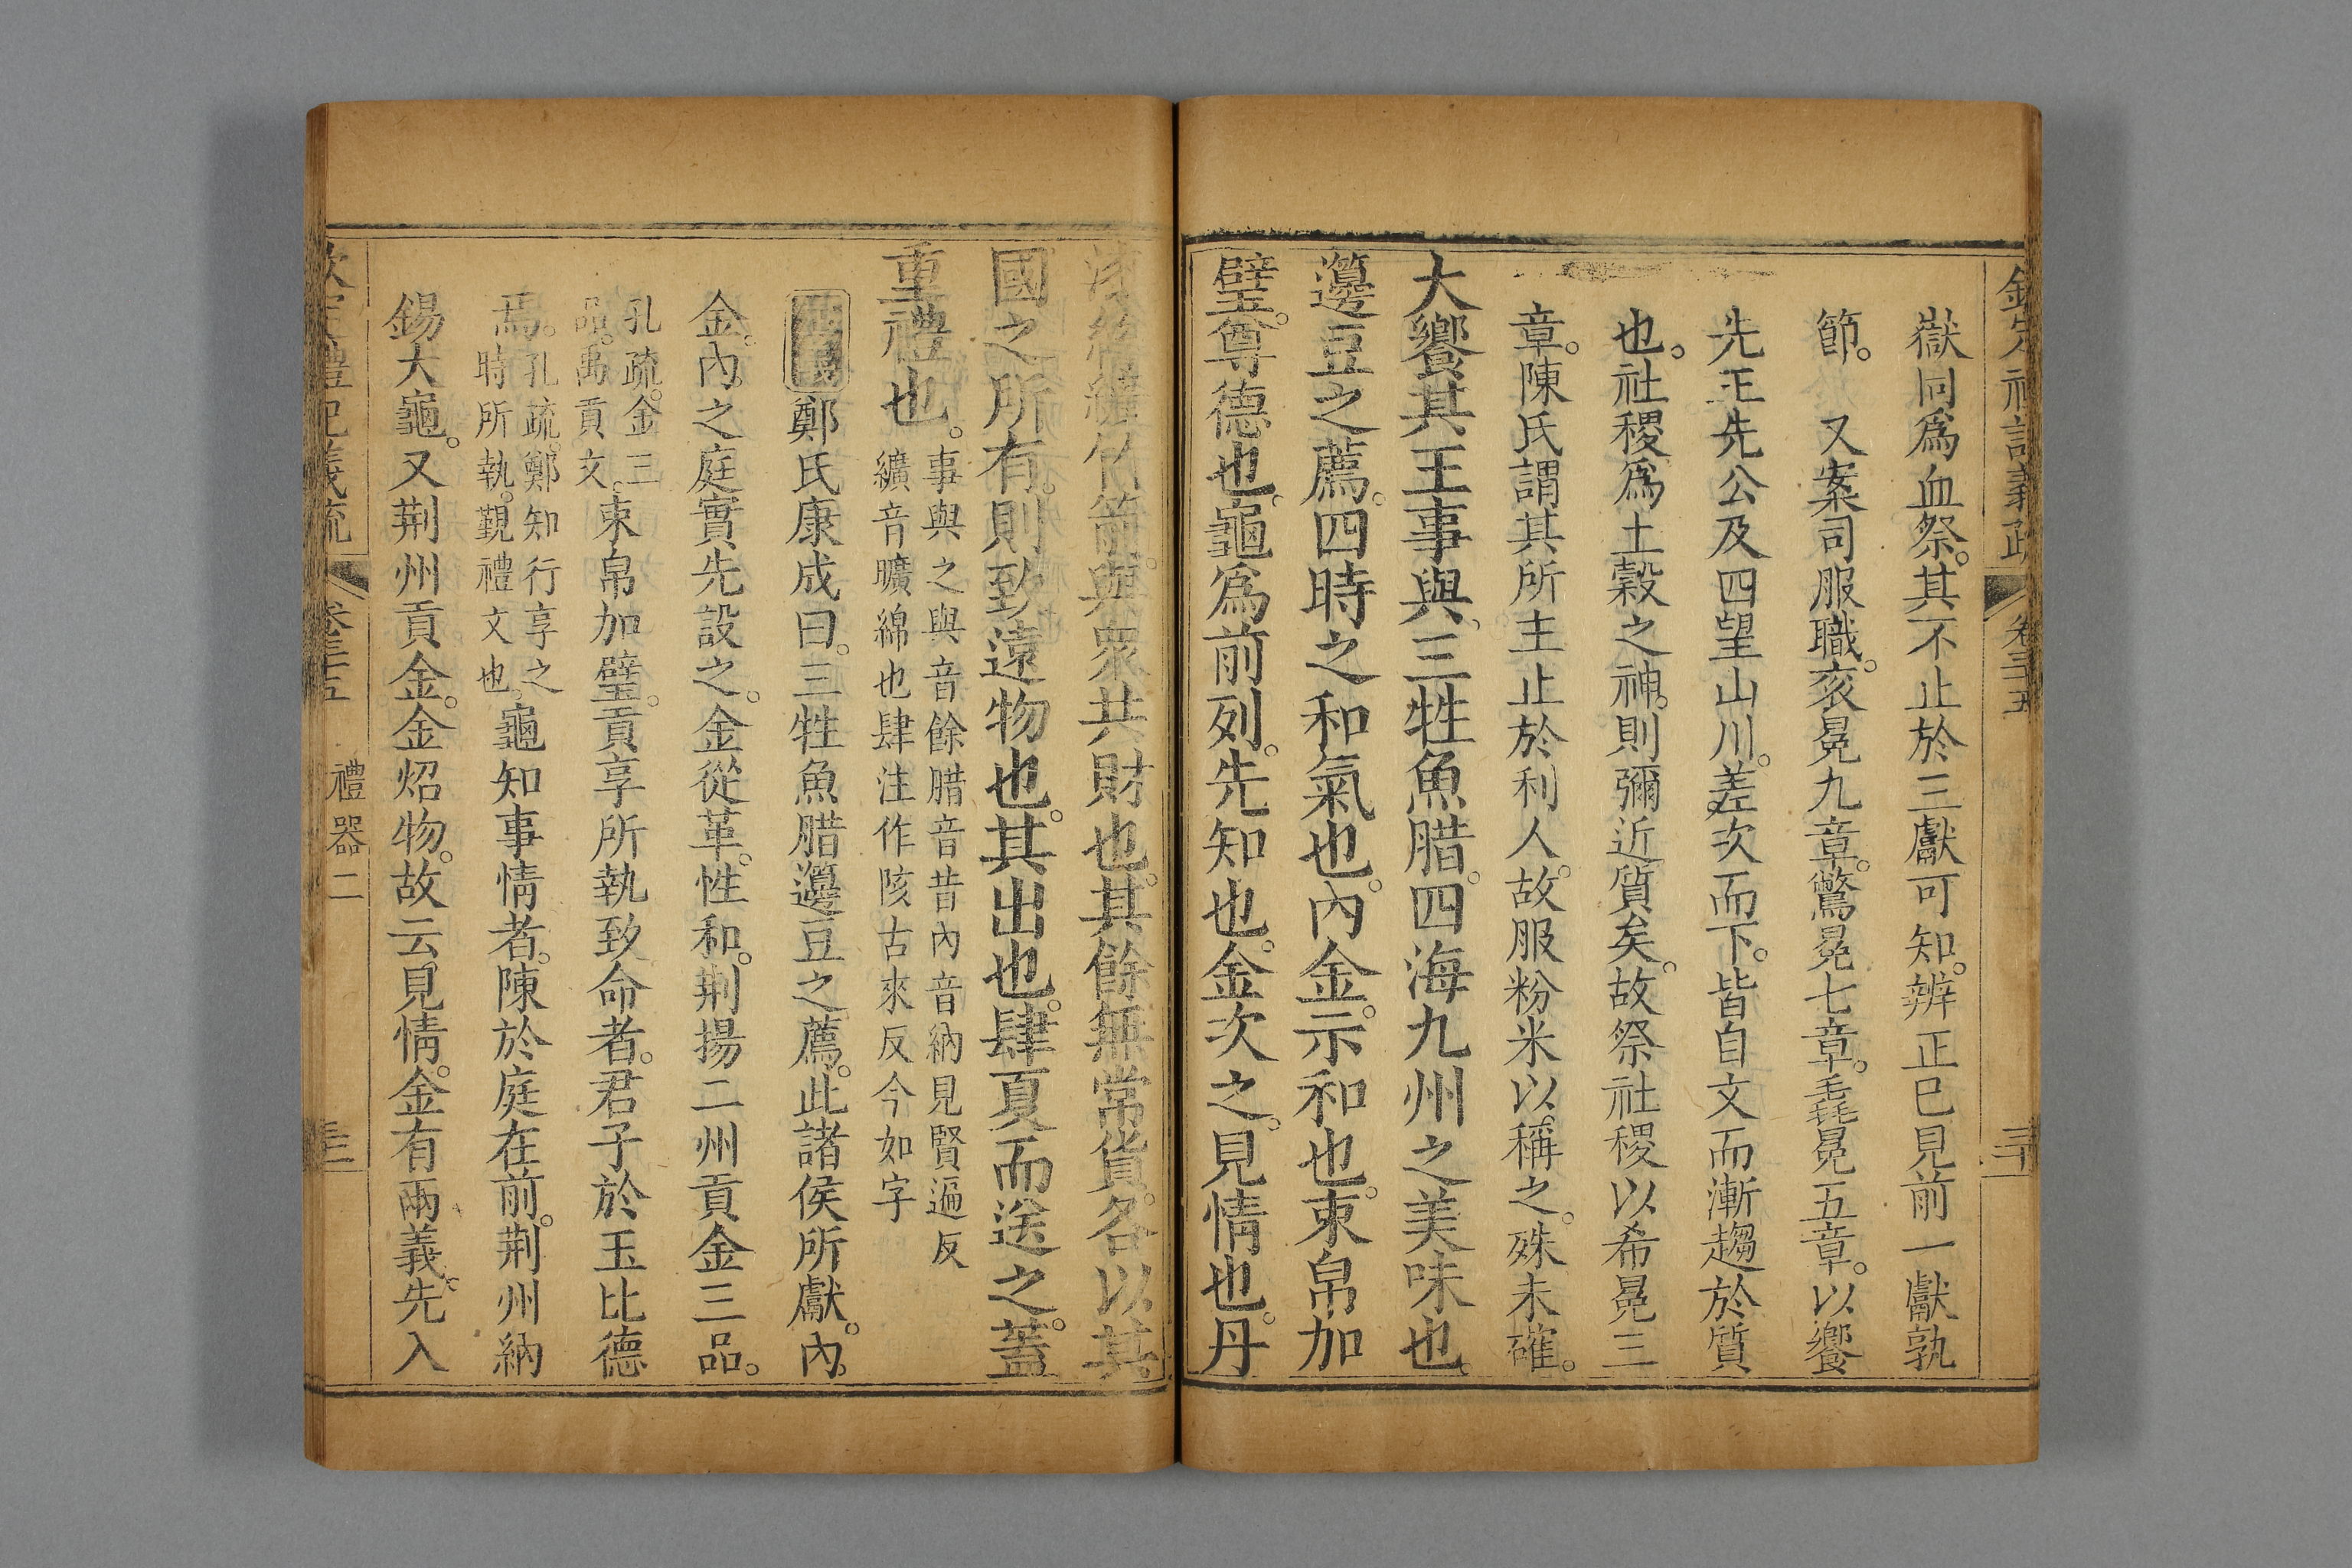 欽定禮記義疏 卷三十五 三十
嶽同爲血祭。其不止於三獻可知。辨正已見前一獻孰
節。 又案司服職。衮冕九章。鷩冕七章。毳冕五章。以饗
先王先公及四望山川。差次而下。皆自文而漸趨於質
也。社稷爲土穀之神。則彌近質矣。故祭社稷以希冕三
章。陳氏謂其所主止於利人。故服粉米以稱之。殊未確。
大饗其王事與。三牲魚腊。四海九州之美味也。
籩豆之薦。四時之和氣也。內金。示和也。束帛加
璧。尊德也。龜爲前列。先知也。金次之。見情也。丹
漆絲纊竹箭。與衆共財也。其餘無常貨。各以其
國之所有。則致遠物也。其出也。肆夏而送之。蓋
重禮也。事與之與音餘腊音昔內音納見賢遍反
纊音曠綿也肆注作陔古來反今如字
鄭氏康成曰。三牲魚腊籩豆之薦。此諸侯所獻。內
金。內之庭實先設之。金從革。性和。荆揚二州貢金三品。
孔疏。金三
品。禹貢文。束帛加璧。貢享所執致命者。君子於玉比德
焉。孔疏。鄭知行享之
時所執。覲禮文也。龜知事情者。陳於庭在前。荆州納
錫大龜。又荆州貢金。金炤物。故云見情。金有兩義。先入
欽定禮記義疏 卷三十五 禮器二